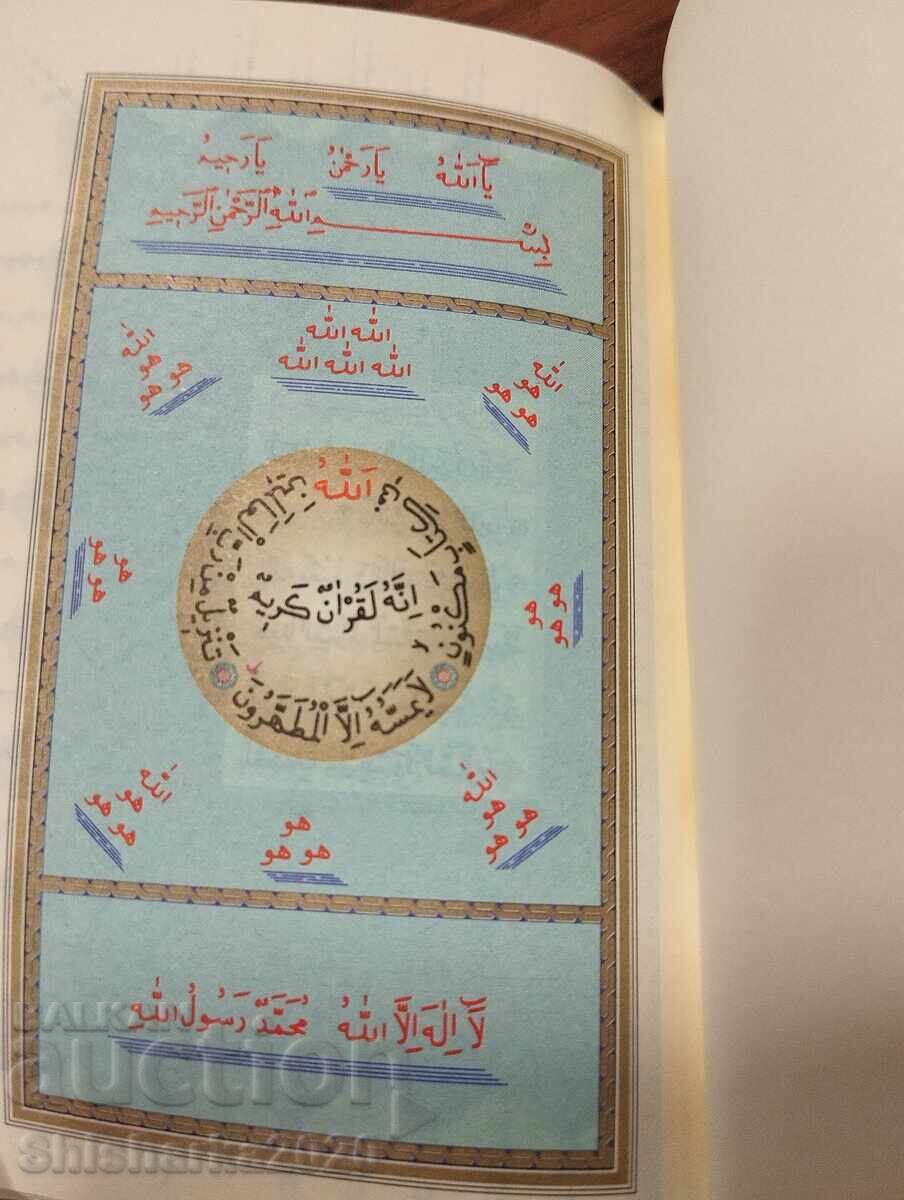 يَآ اَللّٰهُ يَا رَحْمٰنُ يَا رَحِيمُ
بِسْمِ اللّٰهِ الرَّحْمٰنِ الرَّحِيمِ
اللّٰه اللّٰه
اللّٰه اللّٰه اللّٰه
اللّٰه
هو
هو هو
اللّٰه
هو هو
هو
اَللّٰهُ
اِنَّهُ لَقُرْاٰنٌ كَرِيمٌ
فِى كِتَابٍ مَكْنُونٍ
لَا يَمَسُّهُ اِلَّا الْمُطَهَّرُونَ
تَنْزِيلٌ مِنْ رَبِّ الْعَالَمِينَ
هو
هو هو
هو
هو هو
اللّٰه
هو هو
هو هو
هو
هو هو
اللّٰه
هو هو
هو هو
لَٓا اِلٰهَ اِلَّا اللّٰهُ مُحَمَّدٌ رَسُولُ اللّٰهِ
BALKAN
auction
Shisharka2024